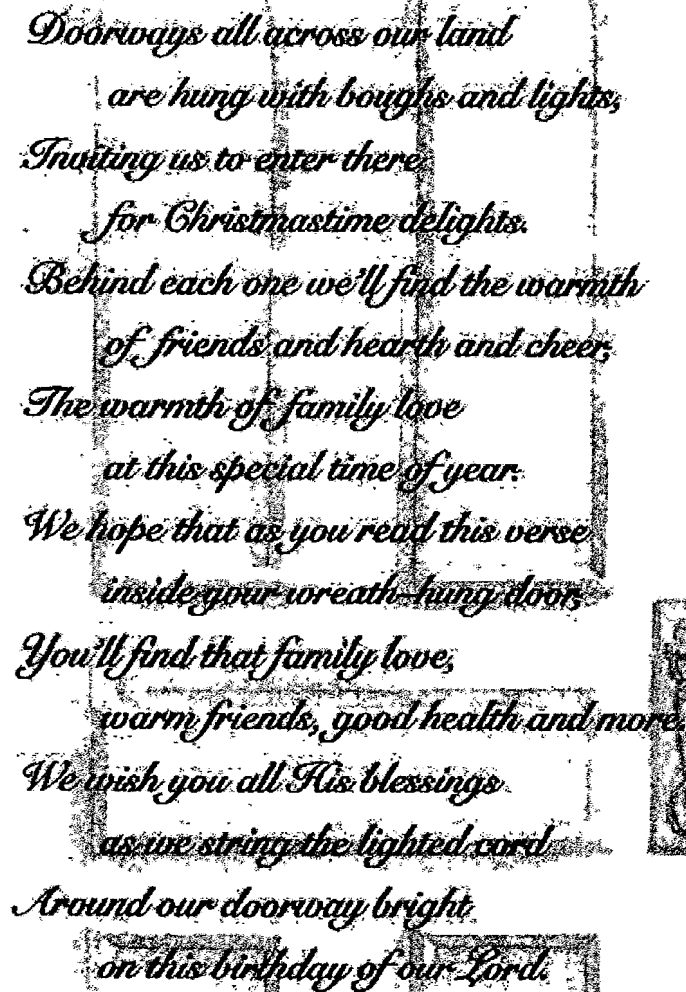 Doorways all across our land
are hung with boughs and lights,
Inviting us to enter there
for Christmastime delights.
Behind each one we'll find the warmth
of friends and hearth and cheer,
The warmth of family love
at this special time of year.
We hope that as you read this verse
inside your wreath-hung door,
You'll find that family love,
warm friends, good health and more.
We wish you all His blessings
as we string the lighted cord
Around our doorway bright
on this birthday of our Lord.